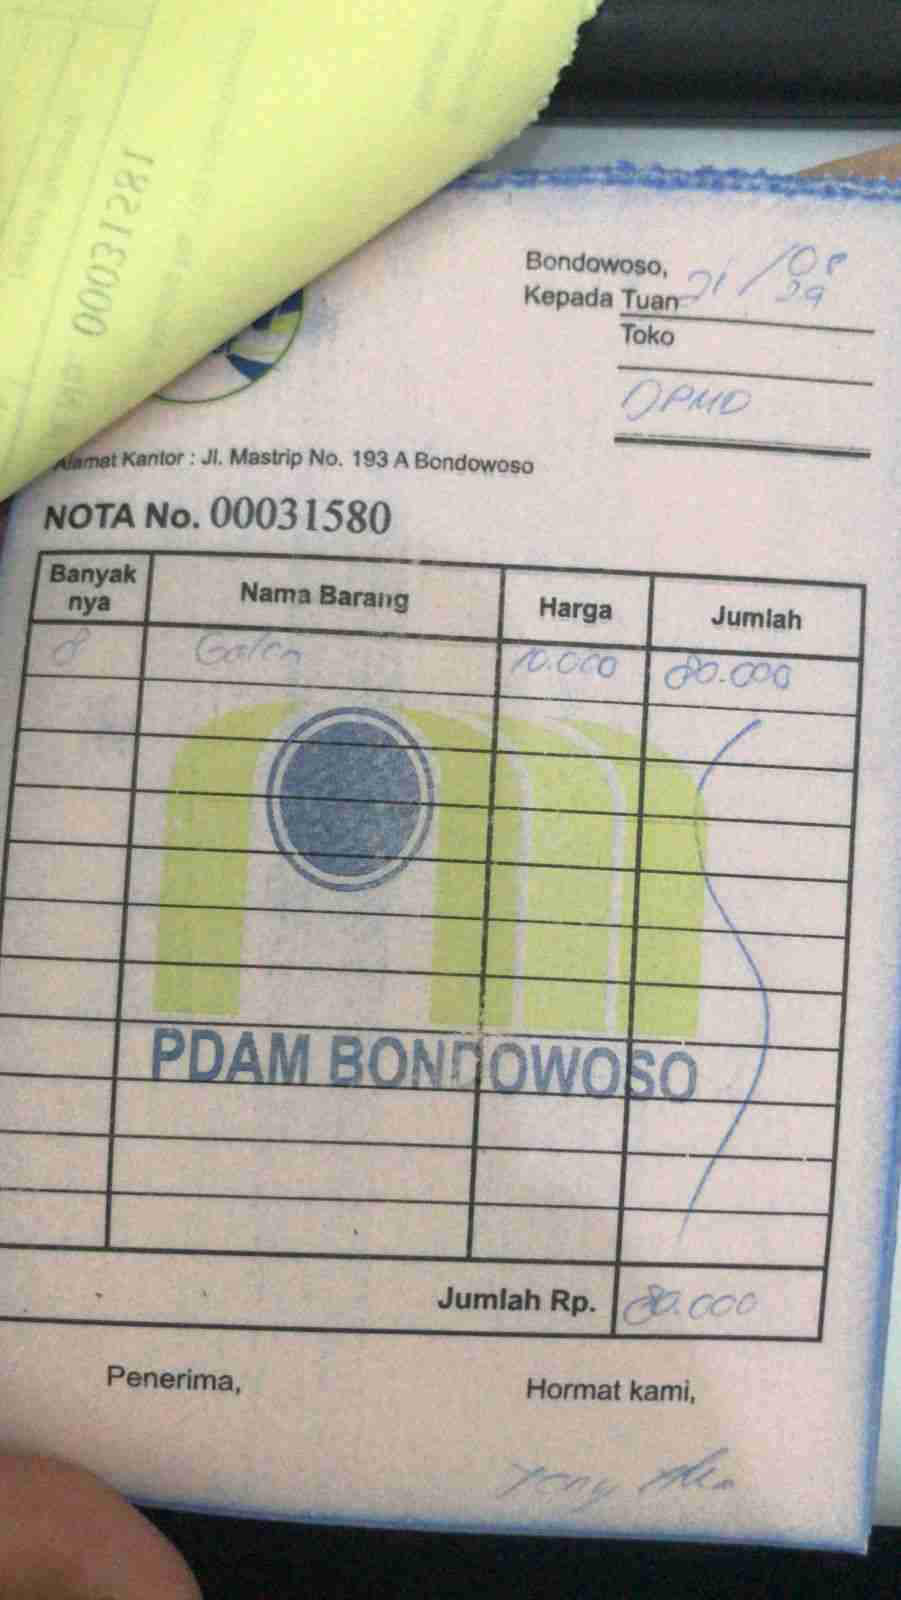 00031581
Bondowoso, 21/08
Kepada Tuan
Toko
DPMD
Alamat Kantor : Jl. Mastrip No. 193 A Bondowoso
NOTA No. 00031580
Banyak nya Nama Barang Harga Jumlah
8 Galon 10.000 80.000
PDAM BONDOWOSO
Jumlah Rp. 80.000
Penerima, Hormat kami,